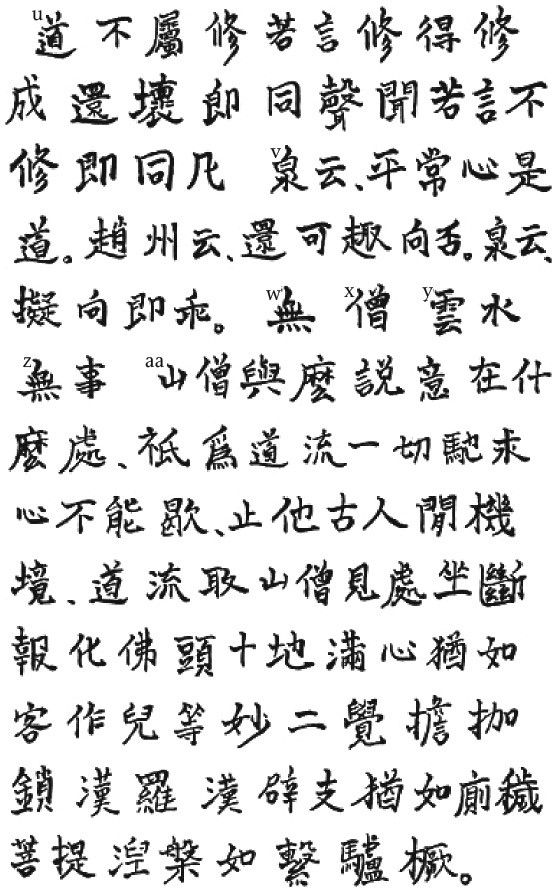 u道不屬修若言修得修
成還壞即同聲聞若言不
修即同凡 v泉云、平常心是
道。趙州云、還可趣向否。泉云、
擬向即乖。 w無 x僧 y雲水
z無事 aa山僧與麼説意在什
麼處、祇爲道流一切馳求
心不能歇、止他古人閒機
境、道流取山僧見處坐斷
報化佛頭十地滿心猶如
客作兒等妙二覺擔枷
鎖漢羅漢辟支猶如廁穢
菩提涅槃如繫驢橛。